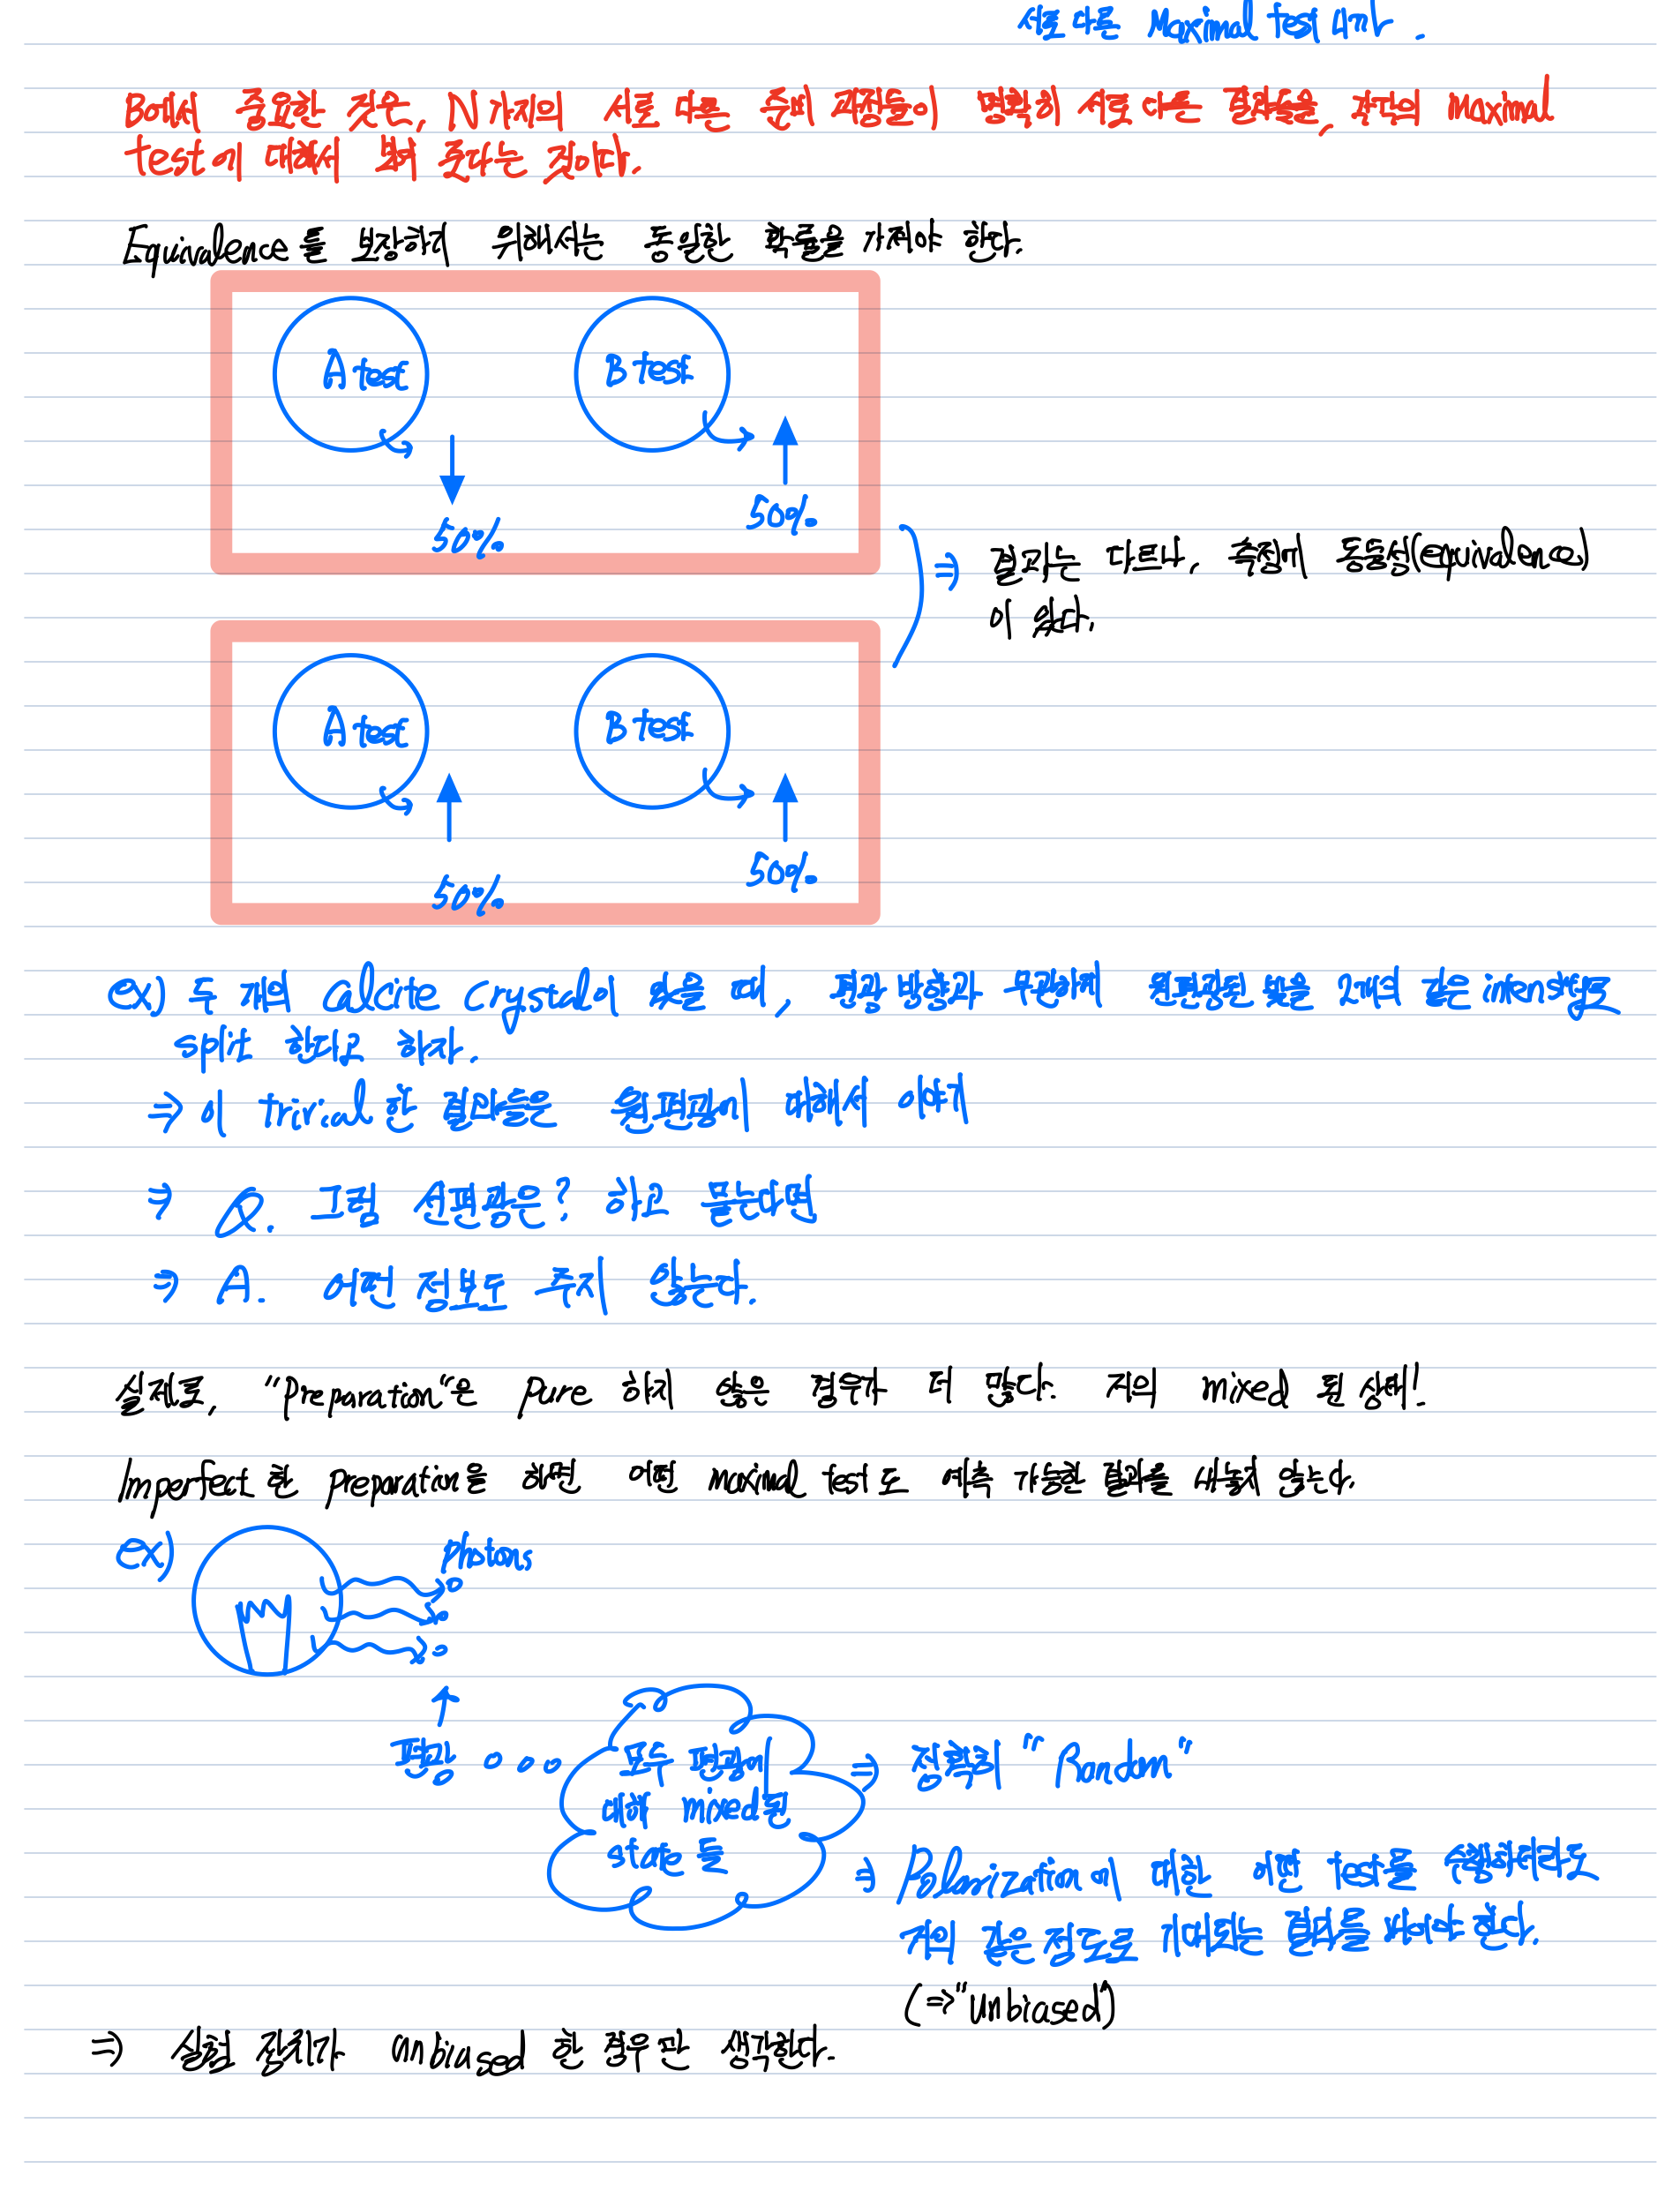 서로 다른 Maximal test 니까.
B에서 중요한 것은, N가지의 서로 다른 준비 과정들이 명확히 서로 다른 결과들을, 각각의 maximal
test에 대해서 보여 준다는 것이다.
Equivalence를 보장하기 위해서는 동일한 확률을 가져야 한다.
A test
B test
50%
50%
⇒ 결과는 다르나, 측정에 동등성(equivalence)
이 있다.
A test
B test
50%
50%
ex) 두 개의 calcite crystal이 있을 때, 편광 방향과 무관하게 원편광된 빛을 2개의 같은 intensity로
split 한다고 하자.
⇒ 이 trivial 한 결과들은 원편광에 대해서 이야기
⇒ Q. 그럼 선편광은? 하고 묻는다면
⇒ A. 어떤 정보도 주지 않는다.
실제로, "Preparation"은 pure 하지 않은 경우가 더 많다. 거의 mixed 된 상태!
Imperfect 한 preparation을 하면 어떤 maximal test도 예측 가능한 결과를 내놓지 않는다.
ex)
photons
편광
모두 편광에
대해 mixed된
state들
⇒ 정확히 "Random"
⇒ Polarization에 대한 어떤 test를 수행하더라도
거의 같은 정도로 기대되는 결과를 내야 한다.
(⇒"unbiased")
⇒ 실험 장치가 unbiased 한 경우만 생각한다.